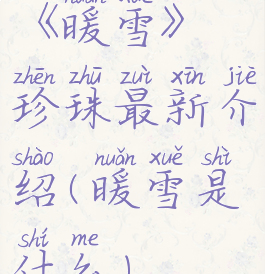 nuǎn xuě
《暖雪》
zhēn zhū zuì xīn jiè
珍珠最新介
shào nuǎn xuě shì
绍(暖雪是
shí me
什么)